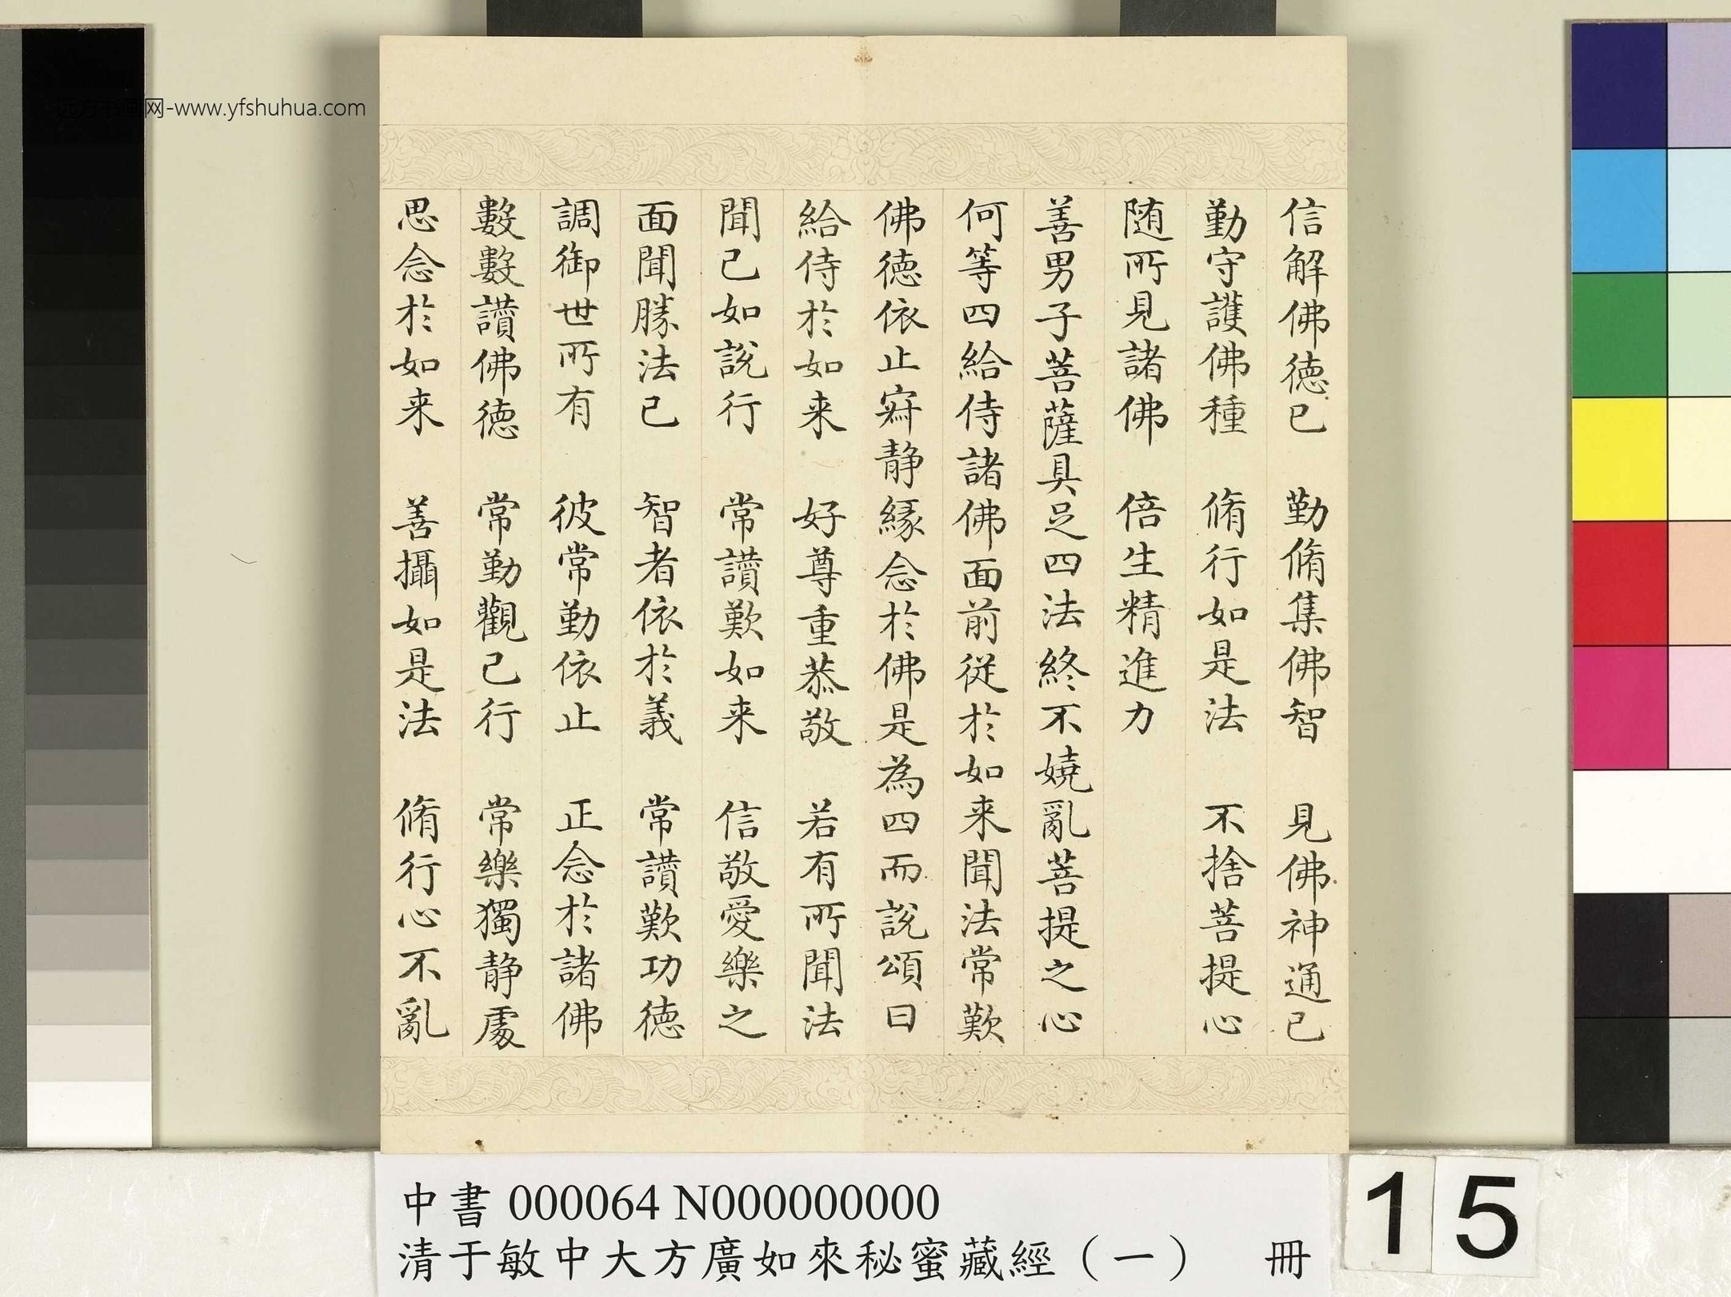 信解佛德已　勤脩集佛智　見佛神通已
勤守護佛種　脩行如是法　不捨菩提心
随所見諸佛　倍生精進力
善男子菩薩具足四法終不嬈亂菩提之心
何等四給侍諸佛面前從於如来聞法常歎
佛德依止寂静緣念於佛是為四而說頌曰
給侍於如来　好尊重恭敬　若有所聞法
聞已如說行　常讚歎如来　信敬愛樂之
面聞勝法已　智者依於義　常讚歎功德
調御世所有　彼常勤依止　正念於諸佛
數數讚佛德　常勤觀已行　常樂獨静處
思念於如来　善攝如是法　脩行心不亂
中書 000064 N000000000
清于敏中大方廣如來秘蜜藏經（一）　冊
15
网-www.yfshuhua.com